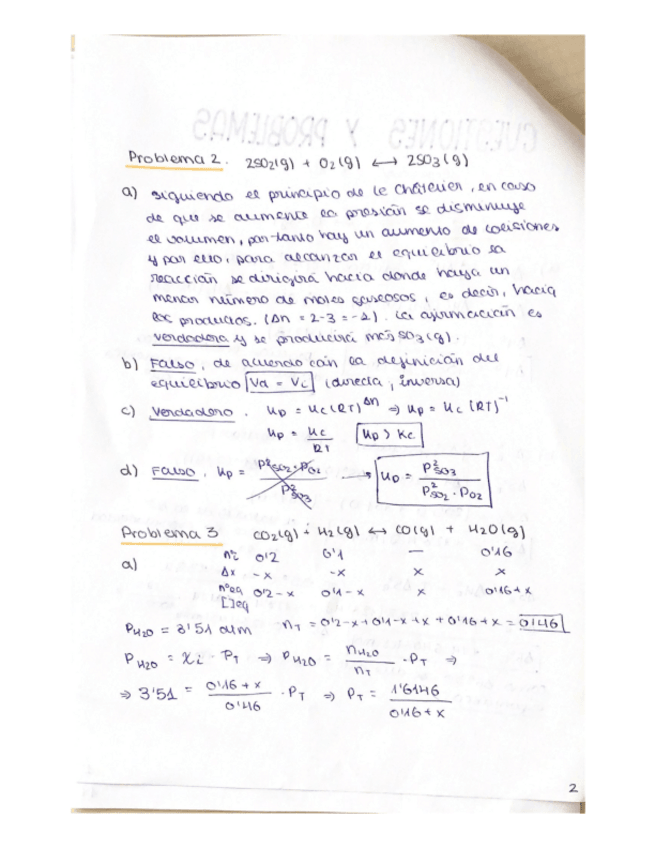 CUESTIONES Y PROBLEMAS
Problema 2. 2SO2(g) + O2(g) ⟷ 2SO3(g)
a) siguiendo el principio de le Châtelier, en caso
de que se aumente la presión se disminuye
el volumen, por tanto hay un aumento de colisiones
y por ello, para alcanzar el equilibrio la
reacción se dirigirá hacia donde haya un
menor número de moles gaseosos, es decir, hacia
los productos. (Δn = 2-3 = -1). La afirmación es
verdadera y se producirá más SO3(g).
b) Falso, de acuerdo con la definición del
equilibrio Vd = Vi (directa, inversa)
c) Verdadero. Kp = Kc(RT)^Δn ⇒ Kp = Kc (RT)^-1
Kp = Kc/RT Kp > Kc
d) Falso. Kp = P²SO2 · PO2 / P²SO3 → Kp = P²SO3 / P²SO2 · PO2
Problema 3 CO2(g) + H2(g) ⟷ CO(g) + H2O(g)
a) nº 0'2 0'1 — 0'16
Δx -x -x x x
nºeq 0'2-x 0'1-x x 0'16+x
[ ]eq
PH2O = 3'51 atm nT = 0'2-x+0'1-x+x+0'16+x = 0'46
PH2O = Xi · PT ⇒ PH2O = nH2O/nT · PT ⇒
⇒ 3'51 = 0'16+x / 0'46 · PT ⇒ PT = 1'6146 / 0'16+x
2